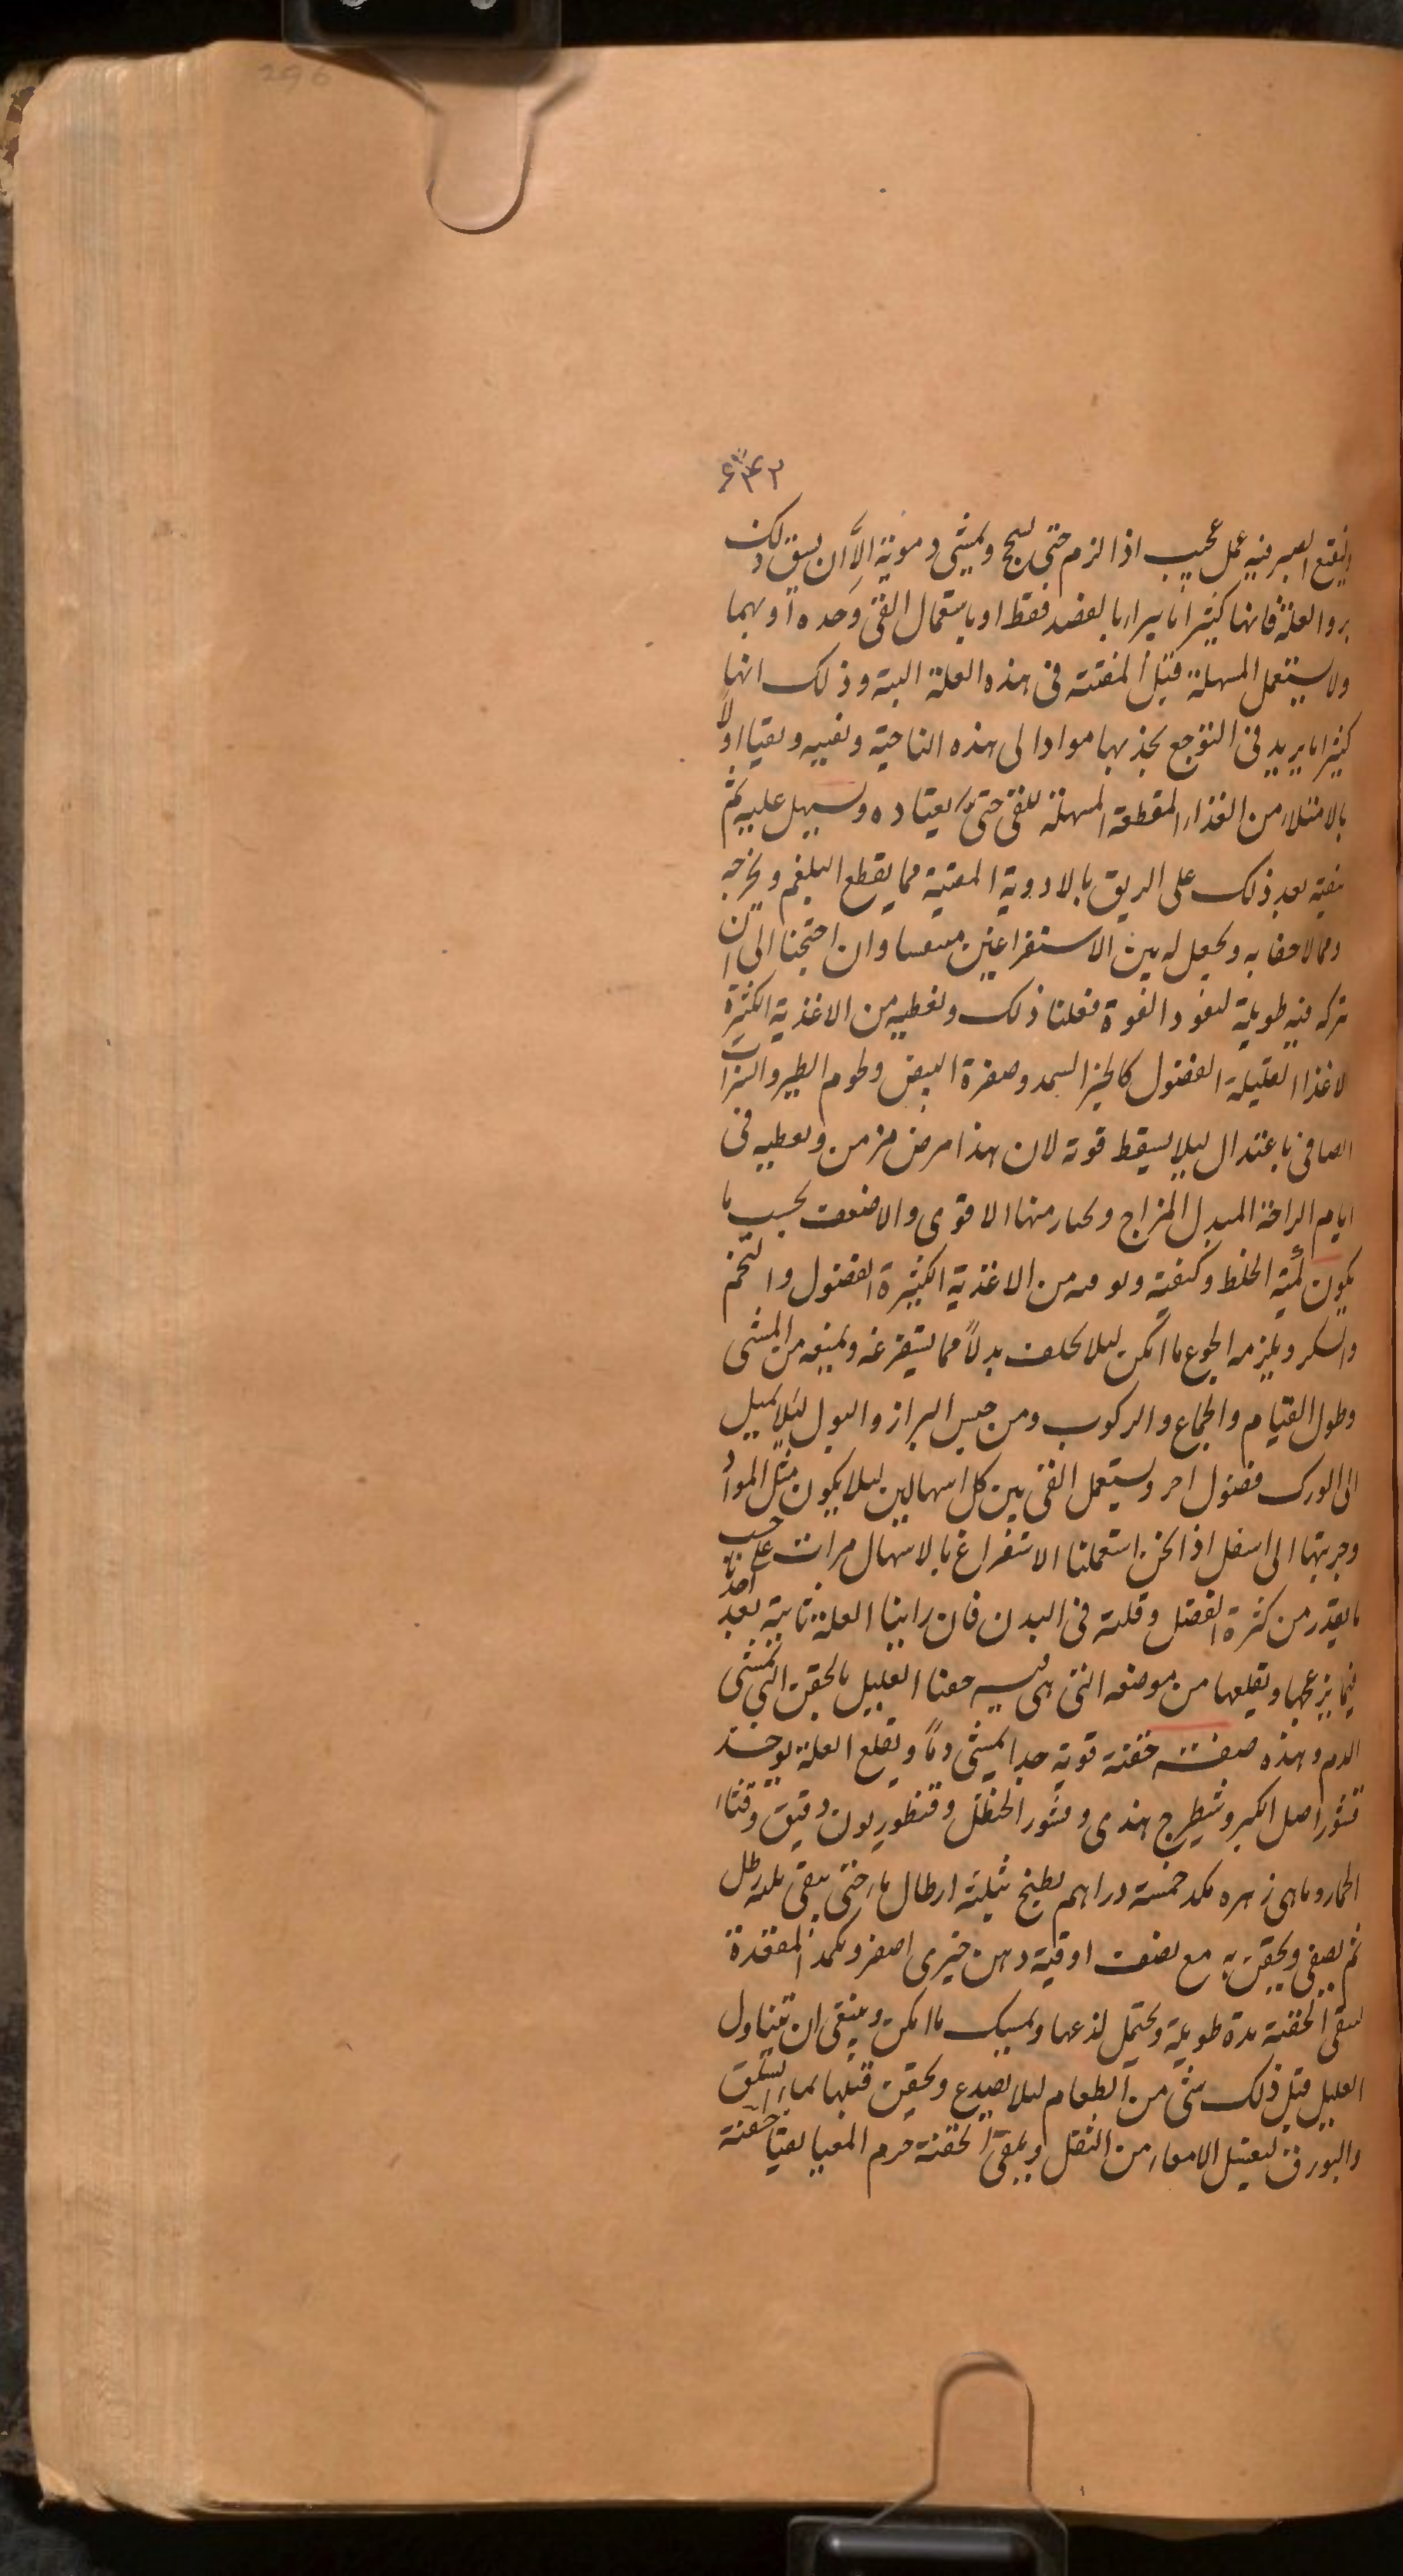 296
۶۴۲
ولنقيع الصبر فيه عمل عجيب اذا لزم حتى يسحج ويمشى دمويته الا ان يسبق ذلك
برو العلة فانها كثيرا ما يبرا بالفصد فقط او باستعمال القى وحده او بهما
ولا يستعمل المسهلة قبل المقيئة فى هذه العلة البتة وذلك انها
كثيرا ما يزيد فى التوجع بجذبها موادا الى هذه الناحية ونقيه ونقيا اولا
بالامتلاء من الغذاء المقطعة المسهلة للقى حتى يعتاده ويسهل عليه ثم
نقيه بعد ذلك على الريق بالادوية المقيية مما يقطع البلغم ويخرجه
ويجعل له بين الاستفراغين وان احتجنا الى ان
تركه فيه طويلة لتعود القوة فعلنا ذلك ونعطيه من الاغذية الكثيرة
لاغذا القليلة الفضول كالخبز السمد وصفرة البيض ولحوم الطير والشراب
الصافى باعتدال ليلا يسقط قوته لان هذا مرض مزمن ونعطيه فى
ايام الراحة المبدل المزاج ونختار منها الاقوى والاضعف بحسب ما
يكون كمية الخلط وكيفية من الاغذية الكثيرة الفضول والتخم
والسكر ويلزمه الجوع ما امكن ليلا يخلف بدلا مما يستفرغه ويمنعه من المشى
وطول القيام والجماع والركوب ومن حبس البراز والبول ليلا يميل
الى الورك فضول اخر ويستعمل القى بين كل اسهالين ليلا يكون مثل المواد
وجريتها الى اسفل اذا نحن استعملنا الاستفراغ بالاسهال مرات على حسب
ما يقدر من كثرة الفضل وقلته فى البدن فان راينا العلة ثابتة بعد اخذنا
فيما يزعجها ويقلعها من موضعه التى هى فيه حقنا العليل بالحقن التى تمشى
الدم وهذه صفت حقنة قوية جدا يمشى دما ويقلع العلة يوخذ
قشور اصل الكبر وشيطرج هندى وقشور الحنظل وقنطوريون دقيق وقثاء
الحمار وماهى زهره مكد خمسة دراهم يطبخ بثلثة ارطال ماء حتى يبقى ثلثه رطل
ثم يصفى ويحقن به مع نصف اوقية دهن خيرى اصفر ويكمد المقعدة
لتبقى الحقنة مدة طويلة ويحتمل لذعها ويمسك ما امكن وينبغى ان يتناول
العليل قبل ذلك شى من الطعام ليلا يصدع ويحقن قبلها بماء السلق
والبورق ليغسل الامعاء من الثقل